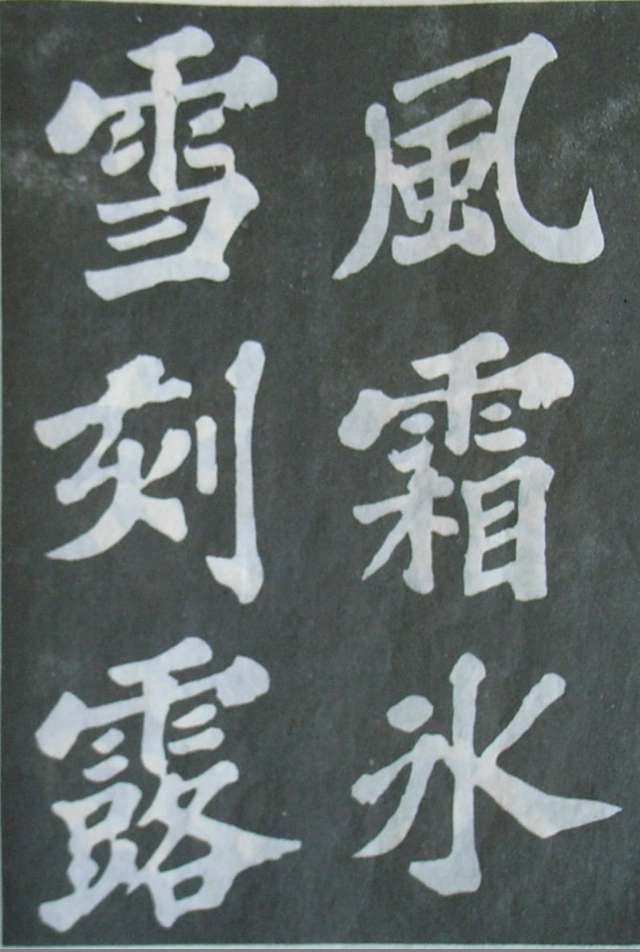 風霜氷
雪刻露